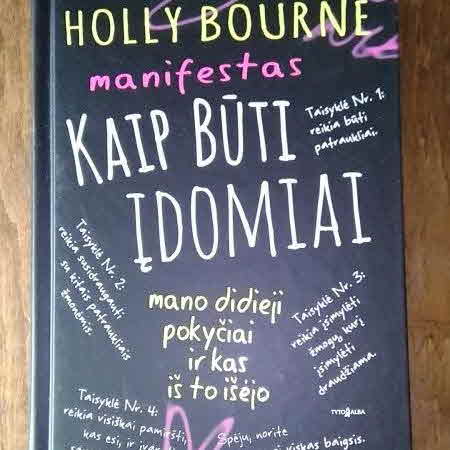 HOLLY BOURNE
manifestas
KAIP BŪTI
ĮDOMIAI
Taisyklė Nr. 1:
reikia būti
patraukliai.
Taisyklė Nr. 2:
reikia susidraugauti
su kitais patraukliais
žmonėmis.
mano didieji
pokyčiai
ir kas
iš to išėjo
Taisyklė Nr. 3:
reikia įsimylėti
žmogų, kurį
įsimylėti
draudžiama.
TYTO ALBA
Taisyklė Nr. 4:
reikia visiškai pamiršti,
kas esi, ir
Spėju, norite
viskas baigsis.